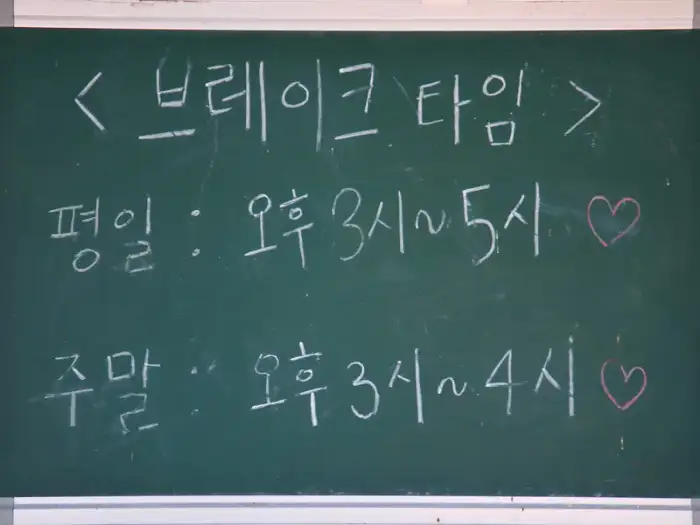 < 브레이크 타임 >
평일 : 오후 3시~5시 ♡
주말 : 오후 3시~4시 ♡